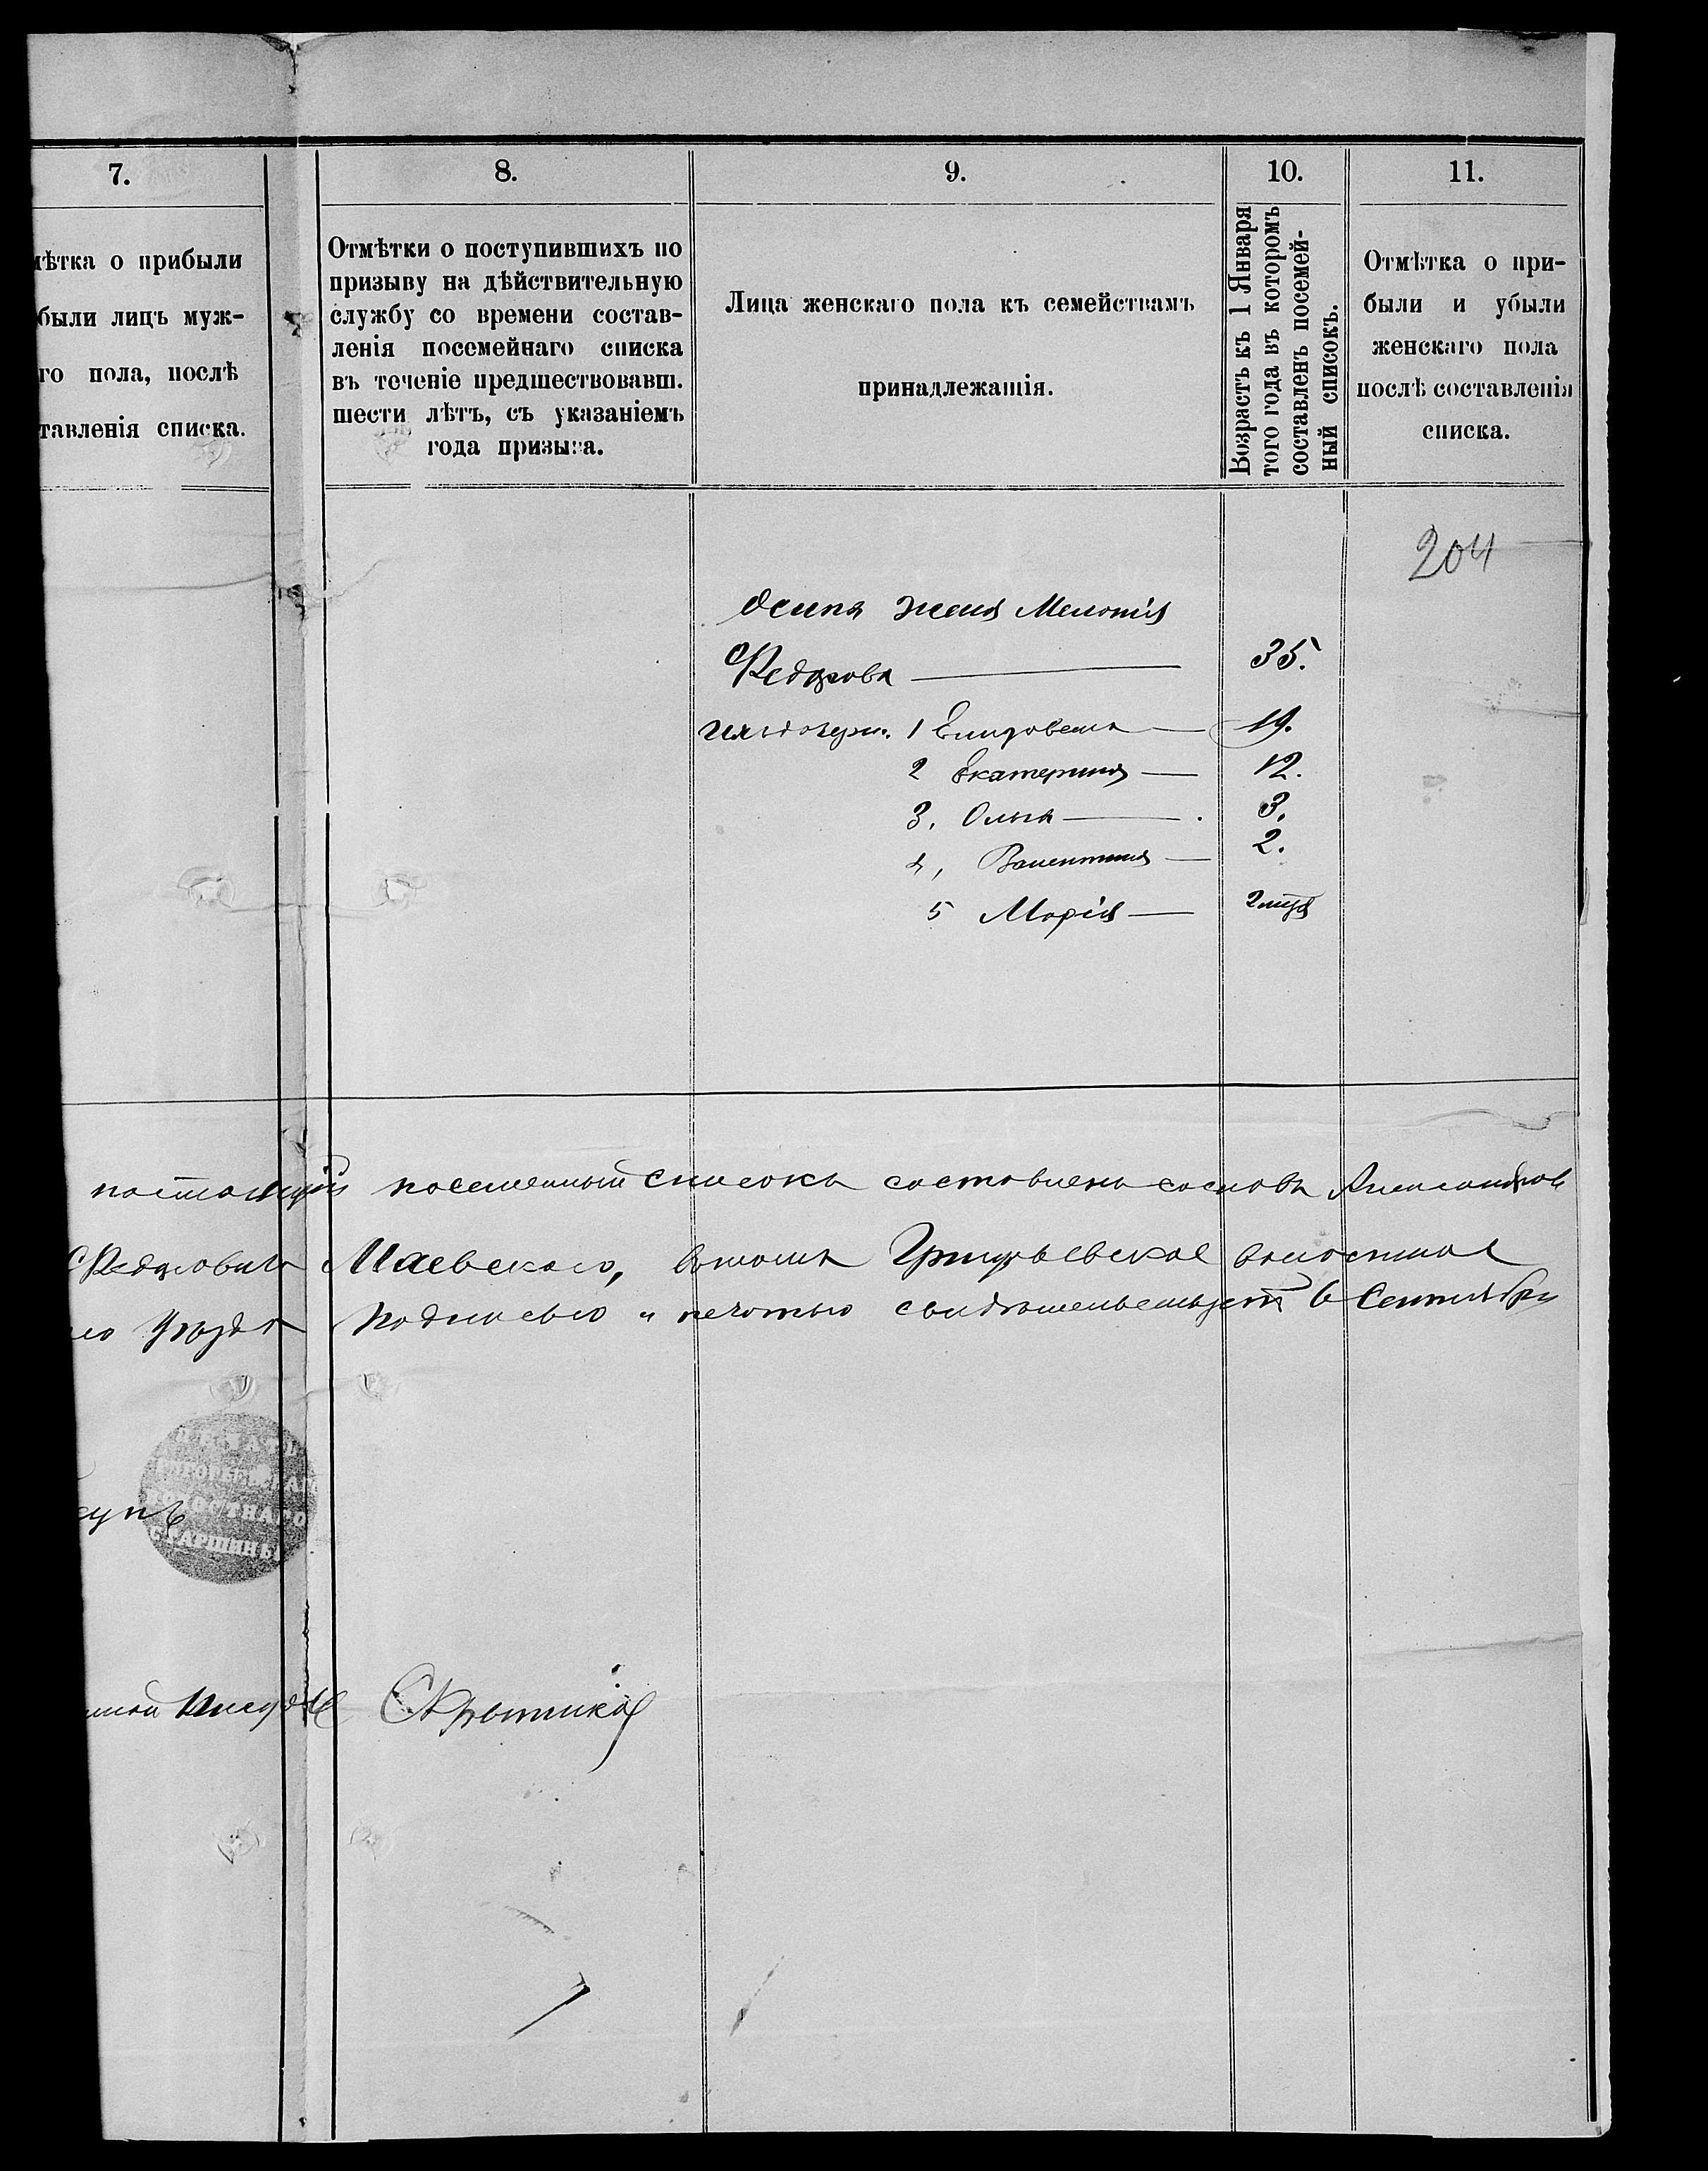 7.
8.
9.
10.
11.
мѣтка о прибыли
были лицъ муж-
го пола, послѣ
тавленія списка.
Отмѣтки о поступившихъ по
призыву на дѣйствительную
службу со времени состав-
ленія посемейнаго списка
въ теченіе предшествовавш.
шести лѣтъ, съ указаніемъ
года призыва.
Лица женскаго пола къ семействамъ
принадлежащія.
Возрастъ къ 1 Января
того года въ которомъ
составленъ посемей-
ный списокъ.
Отмѣтка о при-
были и убыли
женскаго пола
послѣ составленія
списка.
204
Осипа жена
Федорова 35.
ихъ дочери: 1 Елизовета 19.
2 Екатерина 12.
3, Ольга 3.
4, Валентина 2.
5 Марія 2 мца
настоящій посемейный списокъ составленъ
Федоровича Маевскаго, вътомъ Григорьевское волостное
го Уѣзда подписью и печатью свидѣтельствуетъ 6 Сентября
ПЕЧАТЬ
ВОЛОСТНАГО
СТАРШИНЫ